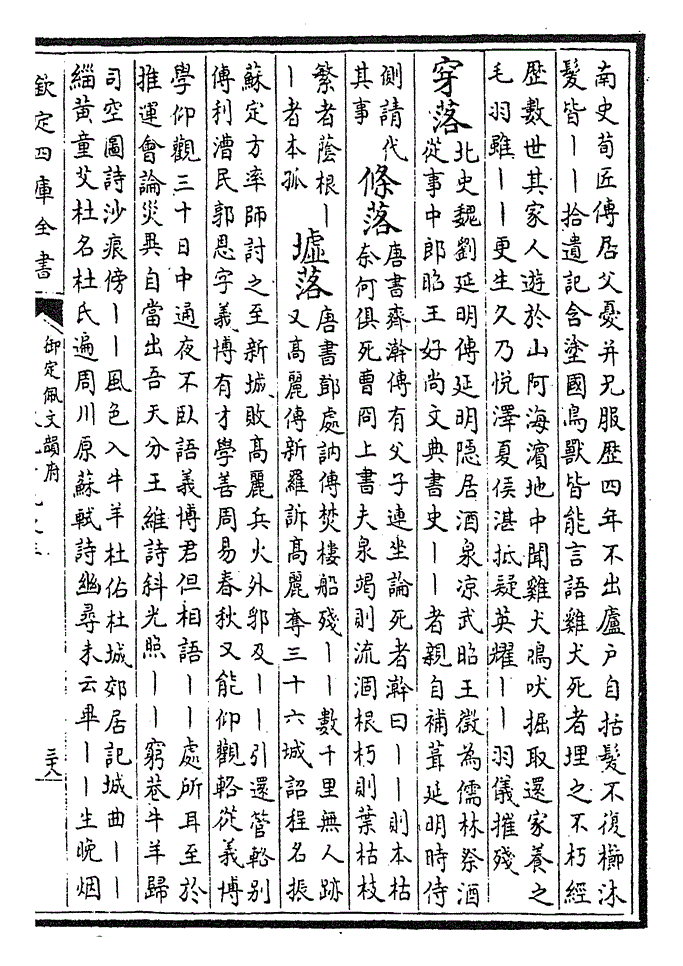 南史荀匠傳居父憂并兄服歷四年不出廬户自括髮不復櫛沐
髮皆——拾遺記含塗國鳥獸皆能言語雞犬死者埋之不朽經
歷數世其家人遊於山阿海濱地中聞雞犬鳴吠掘取還家養之
毛羽雖——更生久乃悅澤夏侯湛抵疑英耀——羽儀摧殘
穿落
北史魏劉延明傳延明隱居酒泉凉武昭王徵為儒林祭酒
從事中郎昭王好尚文典書史——者親自補葺延明時侍
側請代
其事
條落
唐書齊澣傳有父子連坐論死者澣曰——則本枯
奈何俱死曹冏上書夫泉竭則流涸根朽則葉枯枝
繁者蔭根—
—者本孤
墟落
唐書鄧處訥傳焚樓船殘——數千里無人跡
又高麗傳新羅訴高麗奪三十六城詔程名振
蘇定方率師討之至新城敗高麗兵火外郛及——引還管輅别
傳利漕民郭恩字義博有才學善周易春秋又能仰觀輅從義博
學仰觀三十日中通夜不臥語義博君但相語——處所耳至於
推運會論災異自當出吾天分王維詩斜光照——窮巷牛羊歸
司空圖詩沙痕傍——風色入牛羊杜佑杜城郊居記城曲——
緇黃童艾杜名杜氏遍周川原蘇軾詩幽尋未云畢——生晚烟
欽定四庫全書
御定佩文韻府
三十八